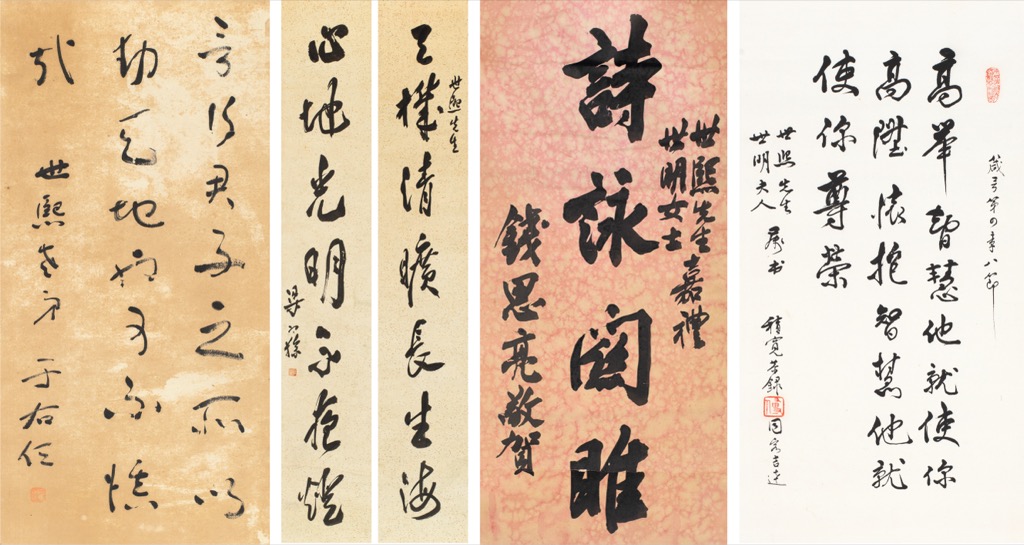 箴言第四章八節
高舉智慧他就使你
高陞懷抱智慧他就
使你尊榮
世熙先生
世明夫人
屬書
積寬恭錄
同客吉達
詩詠關雎
世熙先生
世明女士
嘉禮
錢思亮敬賀
天機清曠長生海
世熙先生
心地光明不夜燈
梁寒操
言行君子之所以
動天地也可不慎
哉
世熙老弟
于右任